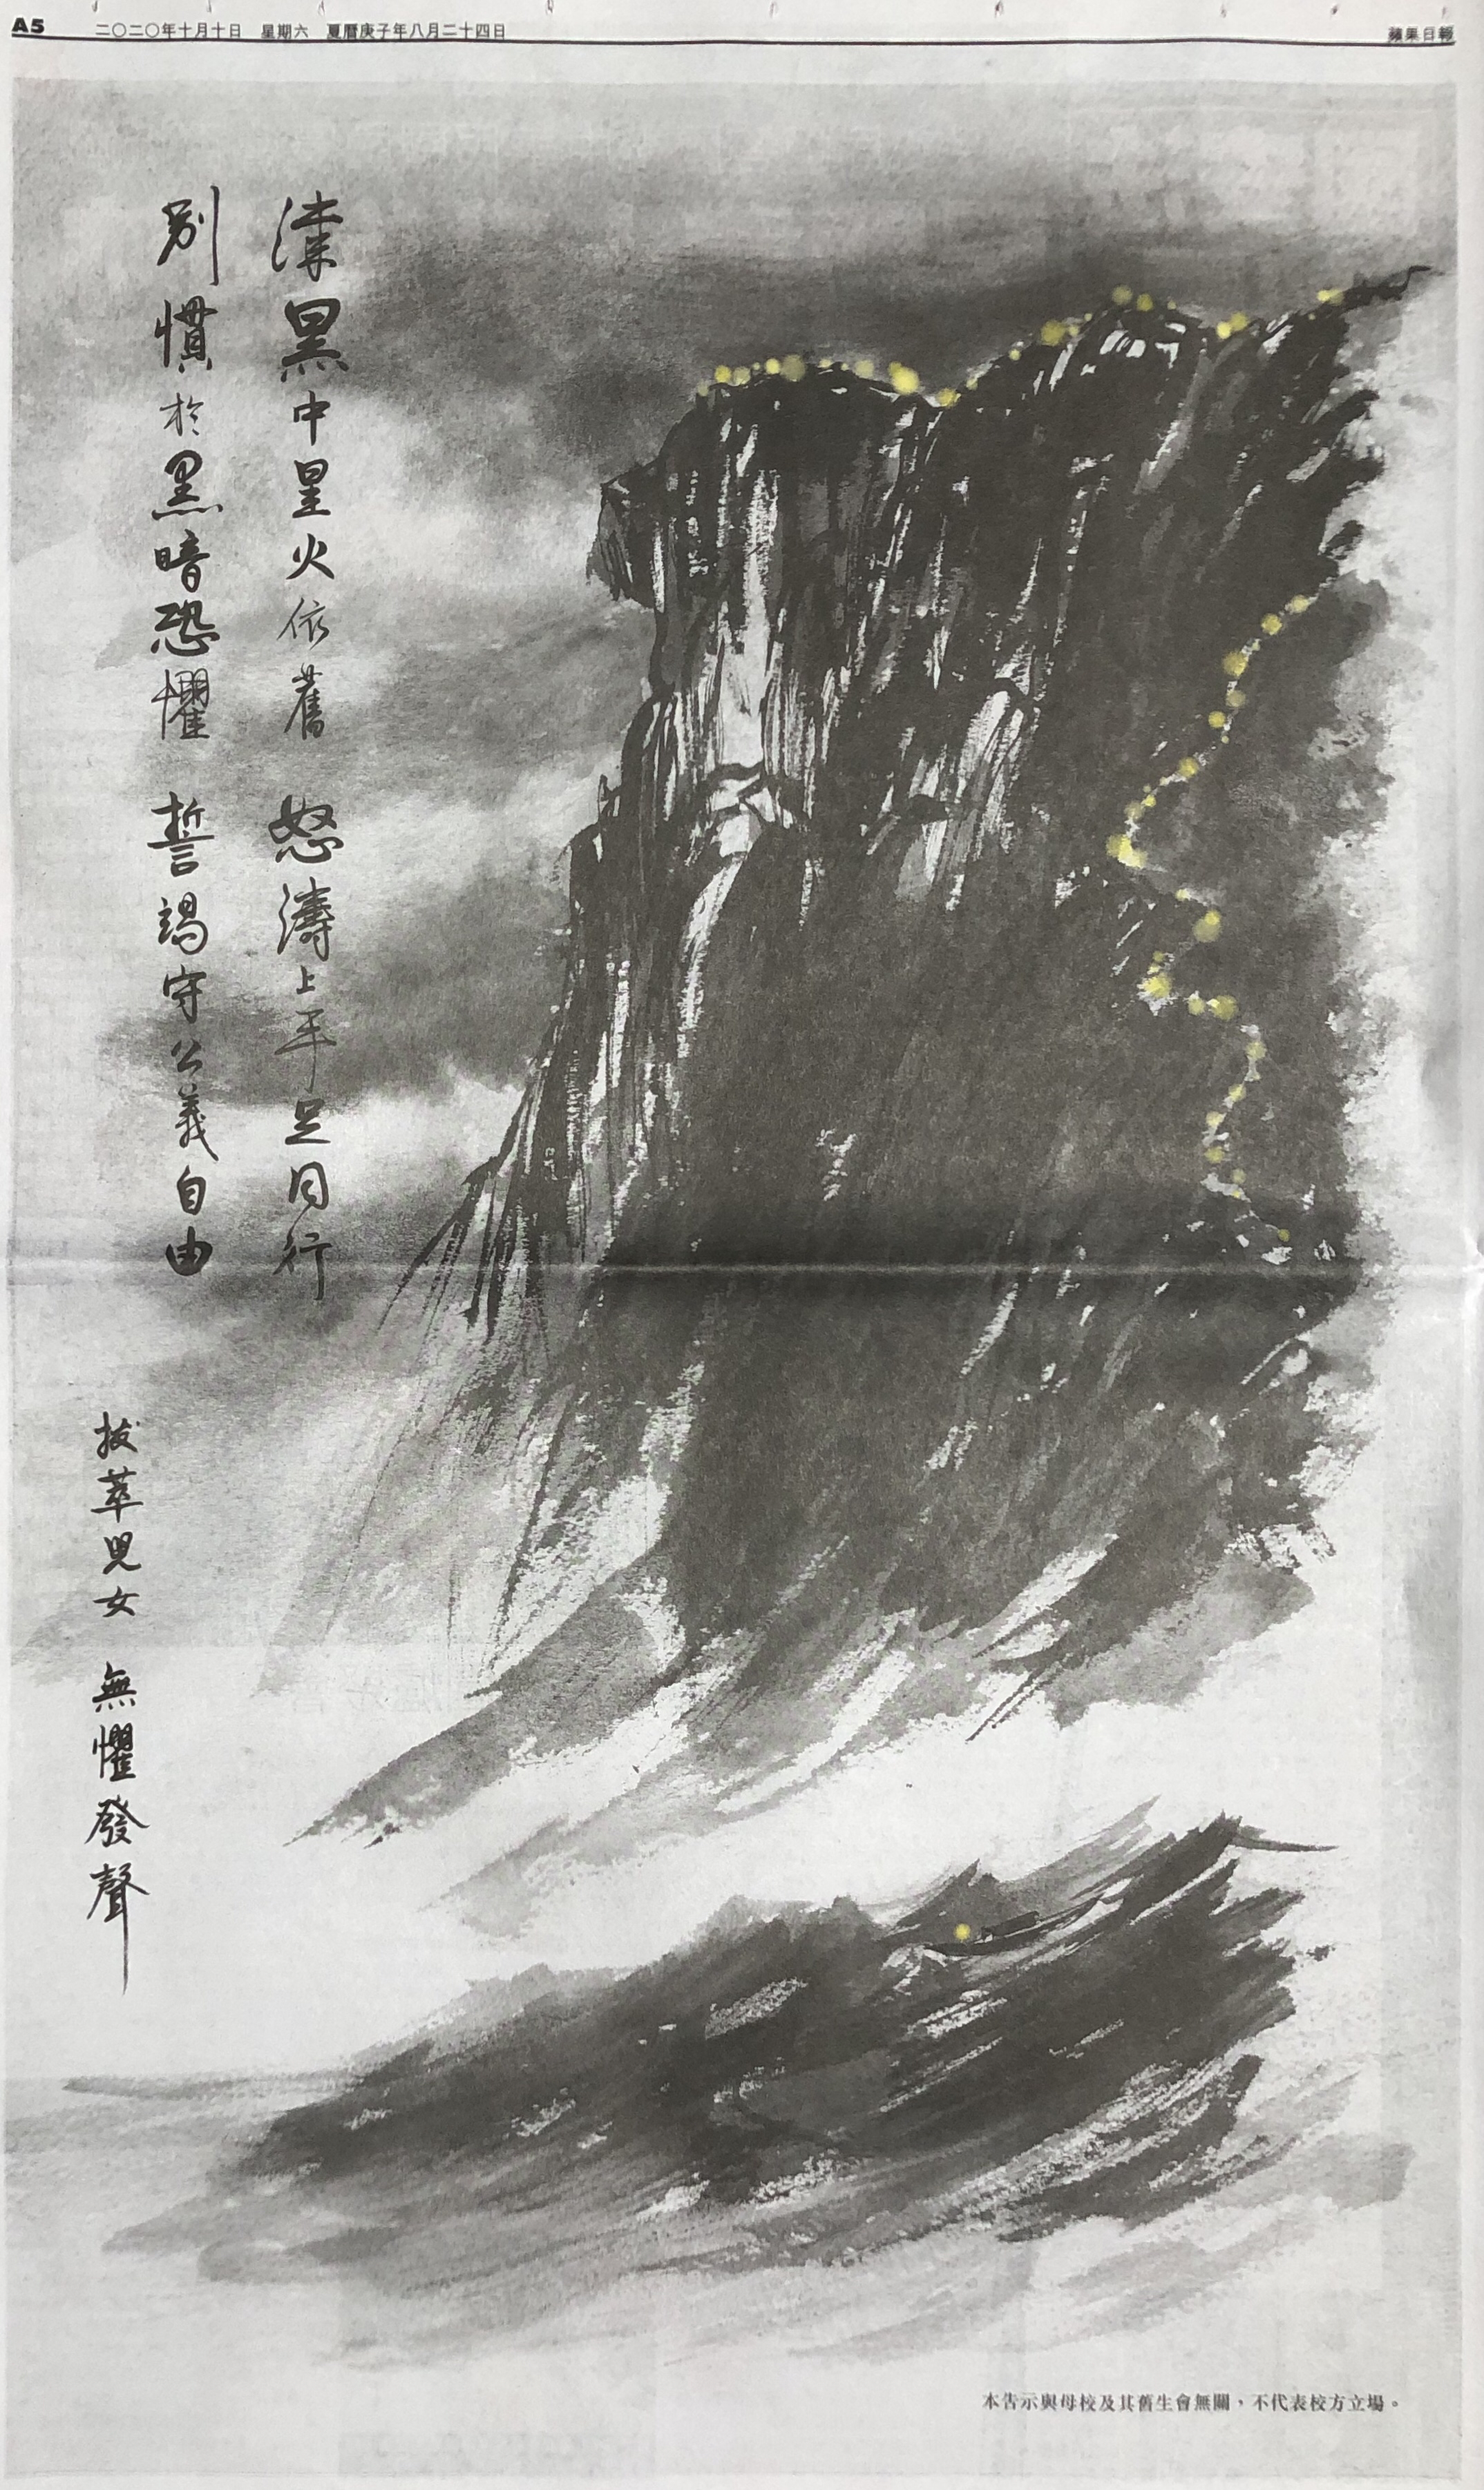 A5
二〇二〇年十月十日 星期六 夏曆庚子年八月二十四日
蘋果日報
漆黑中星火依舊 怒濤上手足同行
別慣於黑暗恐懼 誓竭守公義自由
拔萃兒女 無懼發聲
本告示與母校及其舊生會無關，不代表校方立場。